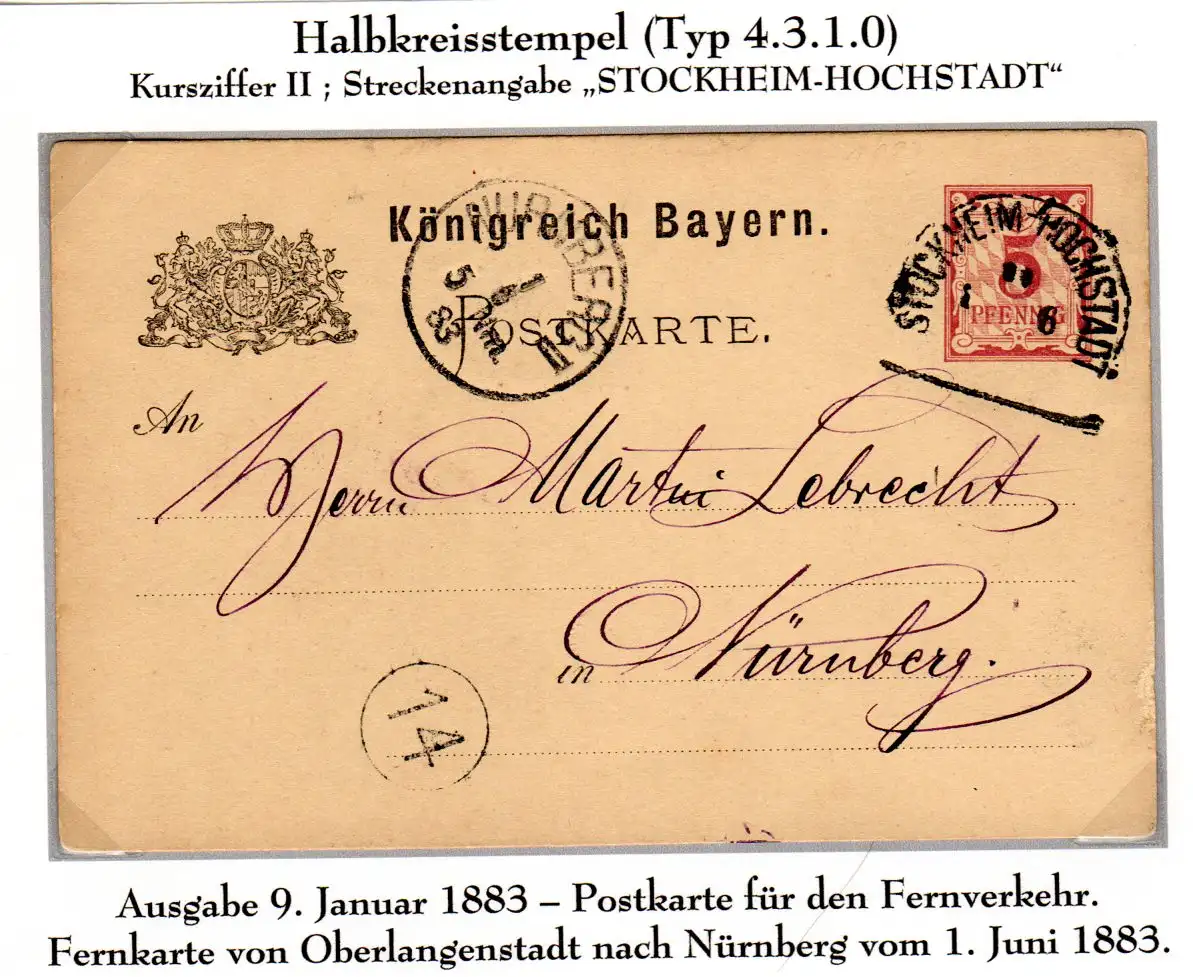 Halbkreisstempel (Typ 4.3.1.0)
Kursziffer II ; Streckenangabe „STOCKHEIM-HOCHSTADT“
Königreich Bayern.
NÜRNBERG II
1
6
5 Nm.
83
STOCKHEIM-HOCHSTADT
II
1 6
5
PFENNIG
POSTKARTE.
An
Herrn Martin Lebrecht
in Nürnberg.
14
Ausgabe 9. Januar 1883 – Postkarte für den Fernverkehr.
Fernkarte von Oberlangenstadt nach Nürnberg vom 1. Juni 1883.